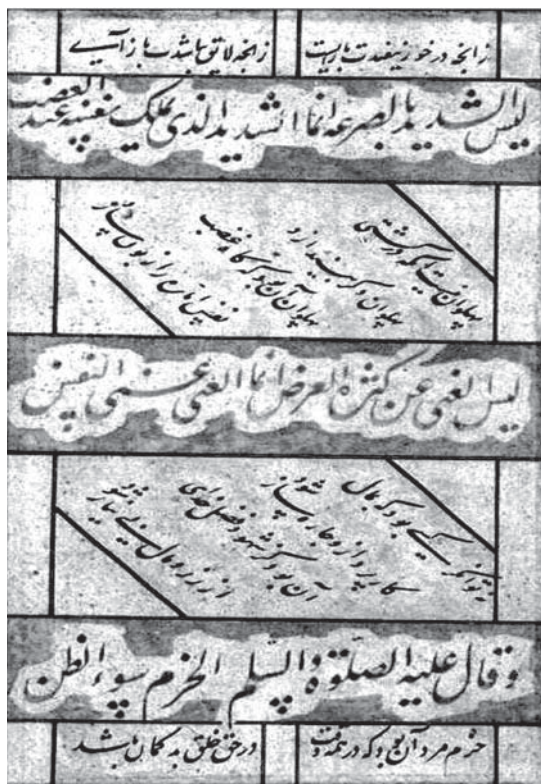 زانچه در خور نیفتدت باز ایست
زانچه لایق نباشدت باز آیے
لیس الشدید بالصرعه انما الشدید الذی یملک نفسه عند الغضب
پهلوان نیست آنکه در کشتی
پهلوان دگر بیندازد
پهلوان آن بود که گاه غضب
نفس اماره را زبون سازد
لیس الغنی عن کثرة العرض انما الغنی غنی النفس
نه توانگر کسے بود که بمال
کارپرداز و چاره ساز شود
آن بود کز شهود فضل خدای
از زر و مال بی نیاز شود
وقال علیه الصلوة والسلم الحزم سوء الظن
حزم مرد آن بود که در همه وقت
در حق خلق بد گمان باشد